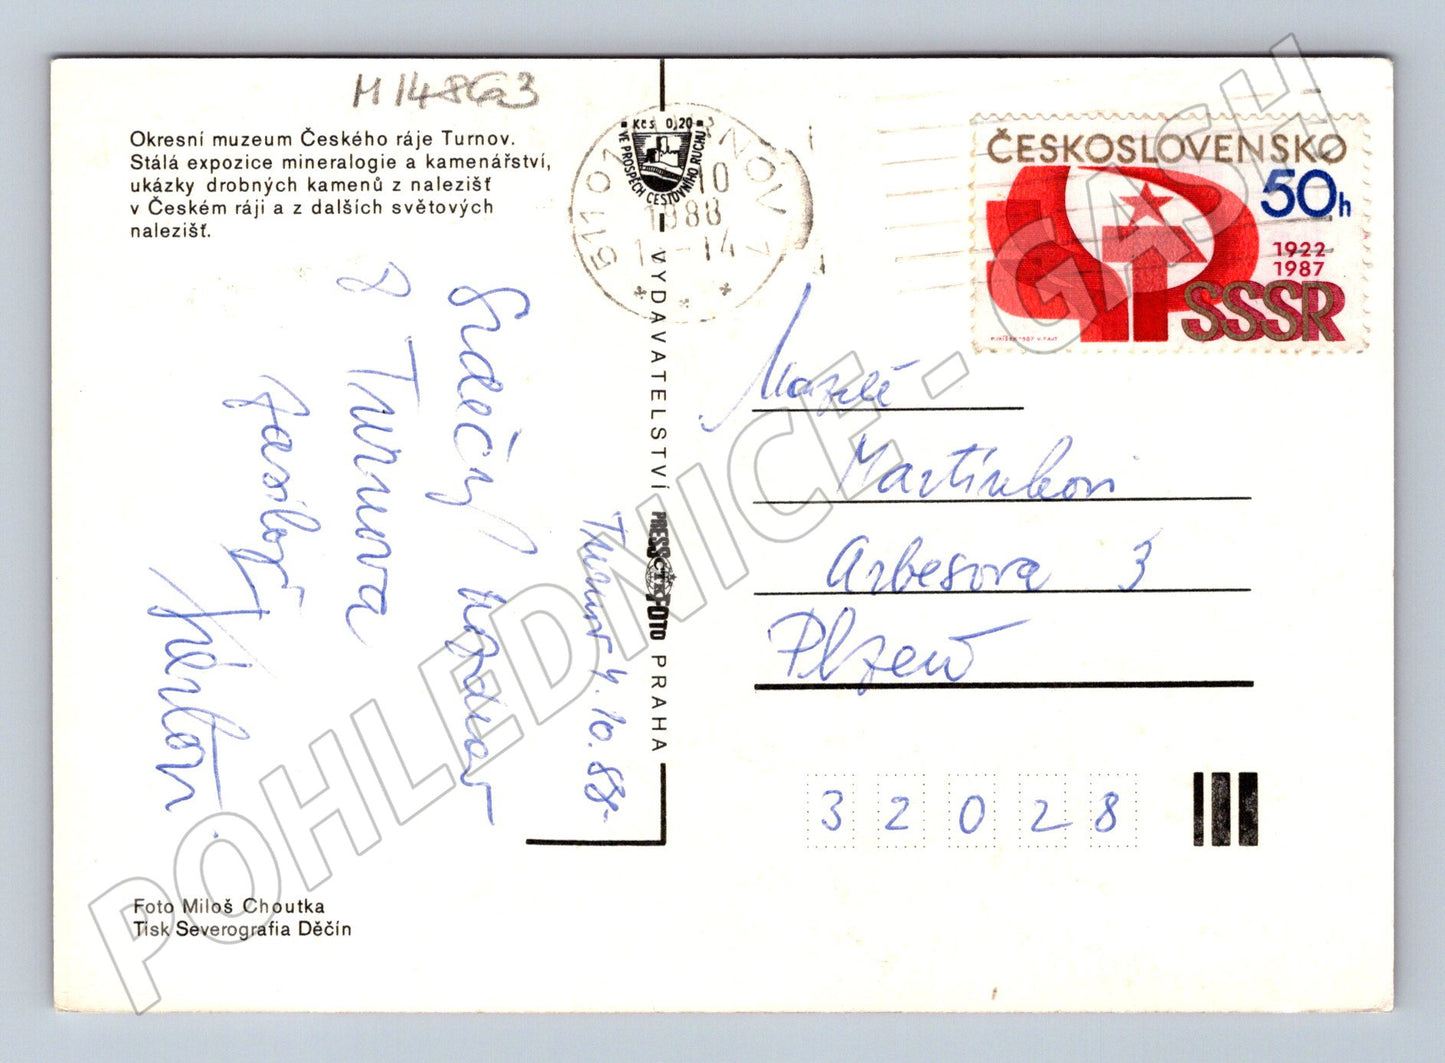 Okresní muzeum Českého ráje Turnov.
Stálá expozice mineralogie a kamenářství,
ukázky drobných kamenů z nalezišť
v Českém ráji a z dalších světových
nalezišť.
Kčs 0,20
VE PROSPĚCH CESTOVNÍHO RUCHU
511 01 TURNOV 1
10
1988
-14
ČESKOSLOVENSKO
50h
1922
1987
SSSR
Srdečný pozdrav
z Turnova
zasílají
Turnov 4. 10. 88.
VYDAVATELSTVÍ PRESSFOTO PRAHA
ČTK
Martínkovi
Arbesova 3
Plzeň
32028
Foto Miloš Choutka
Tisk Severografia Děčín
POHLEDNICE - GASH